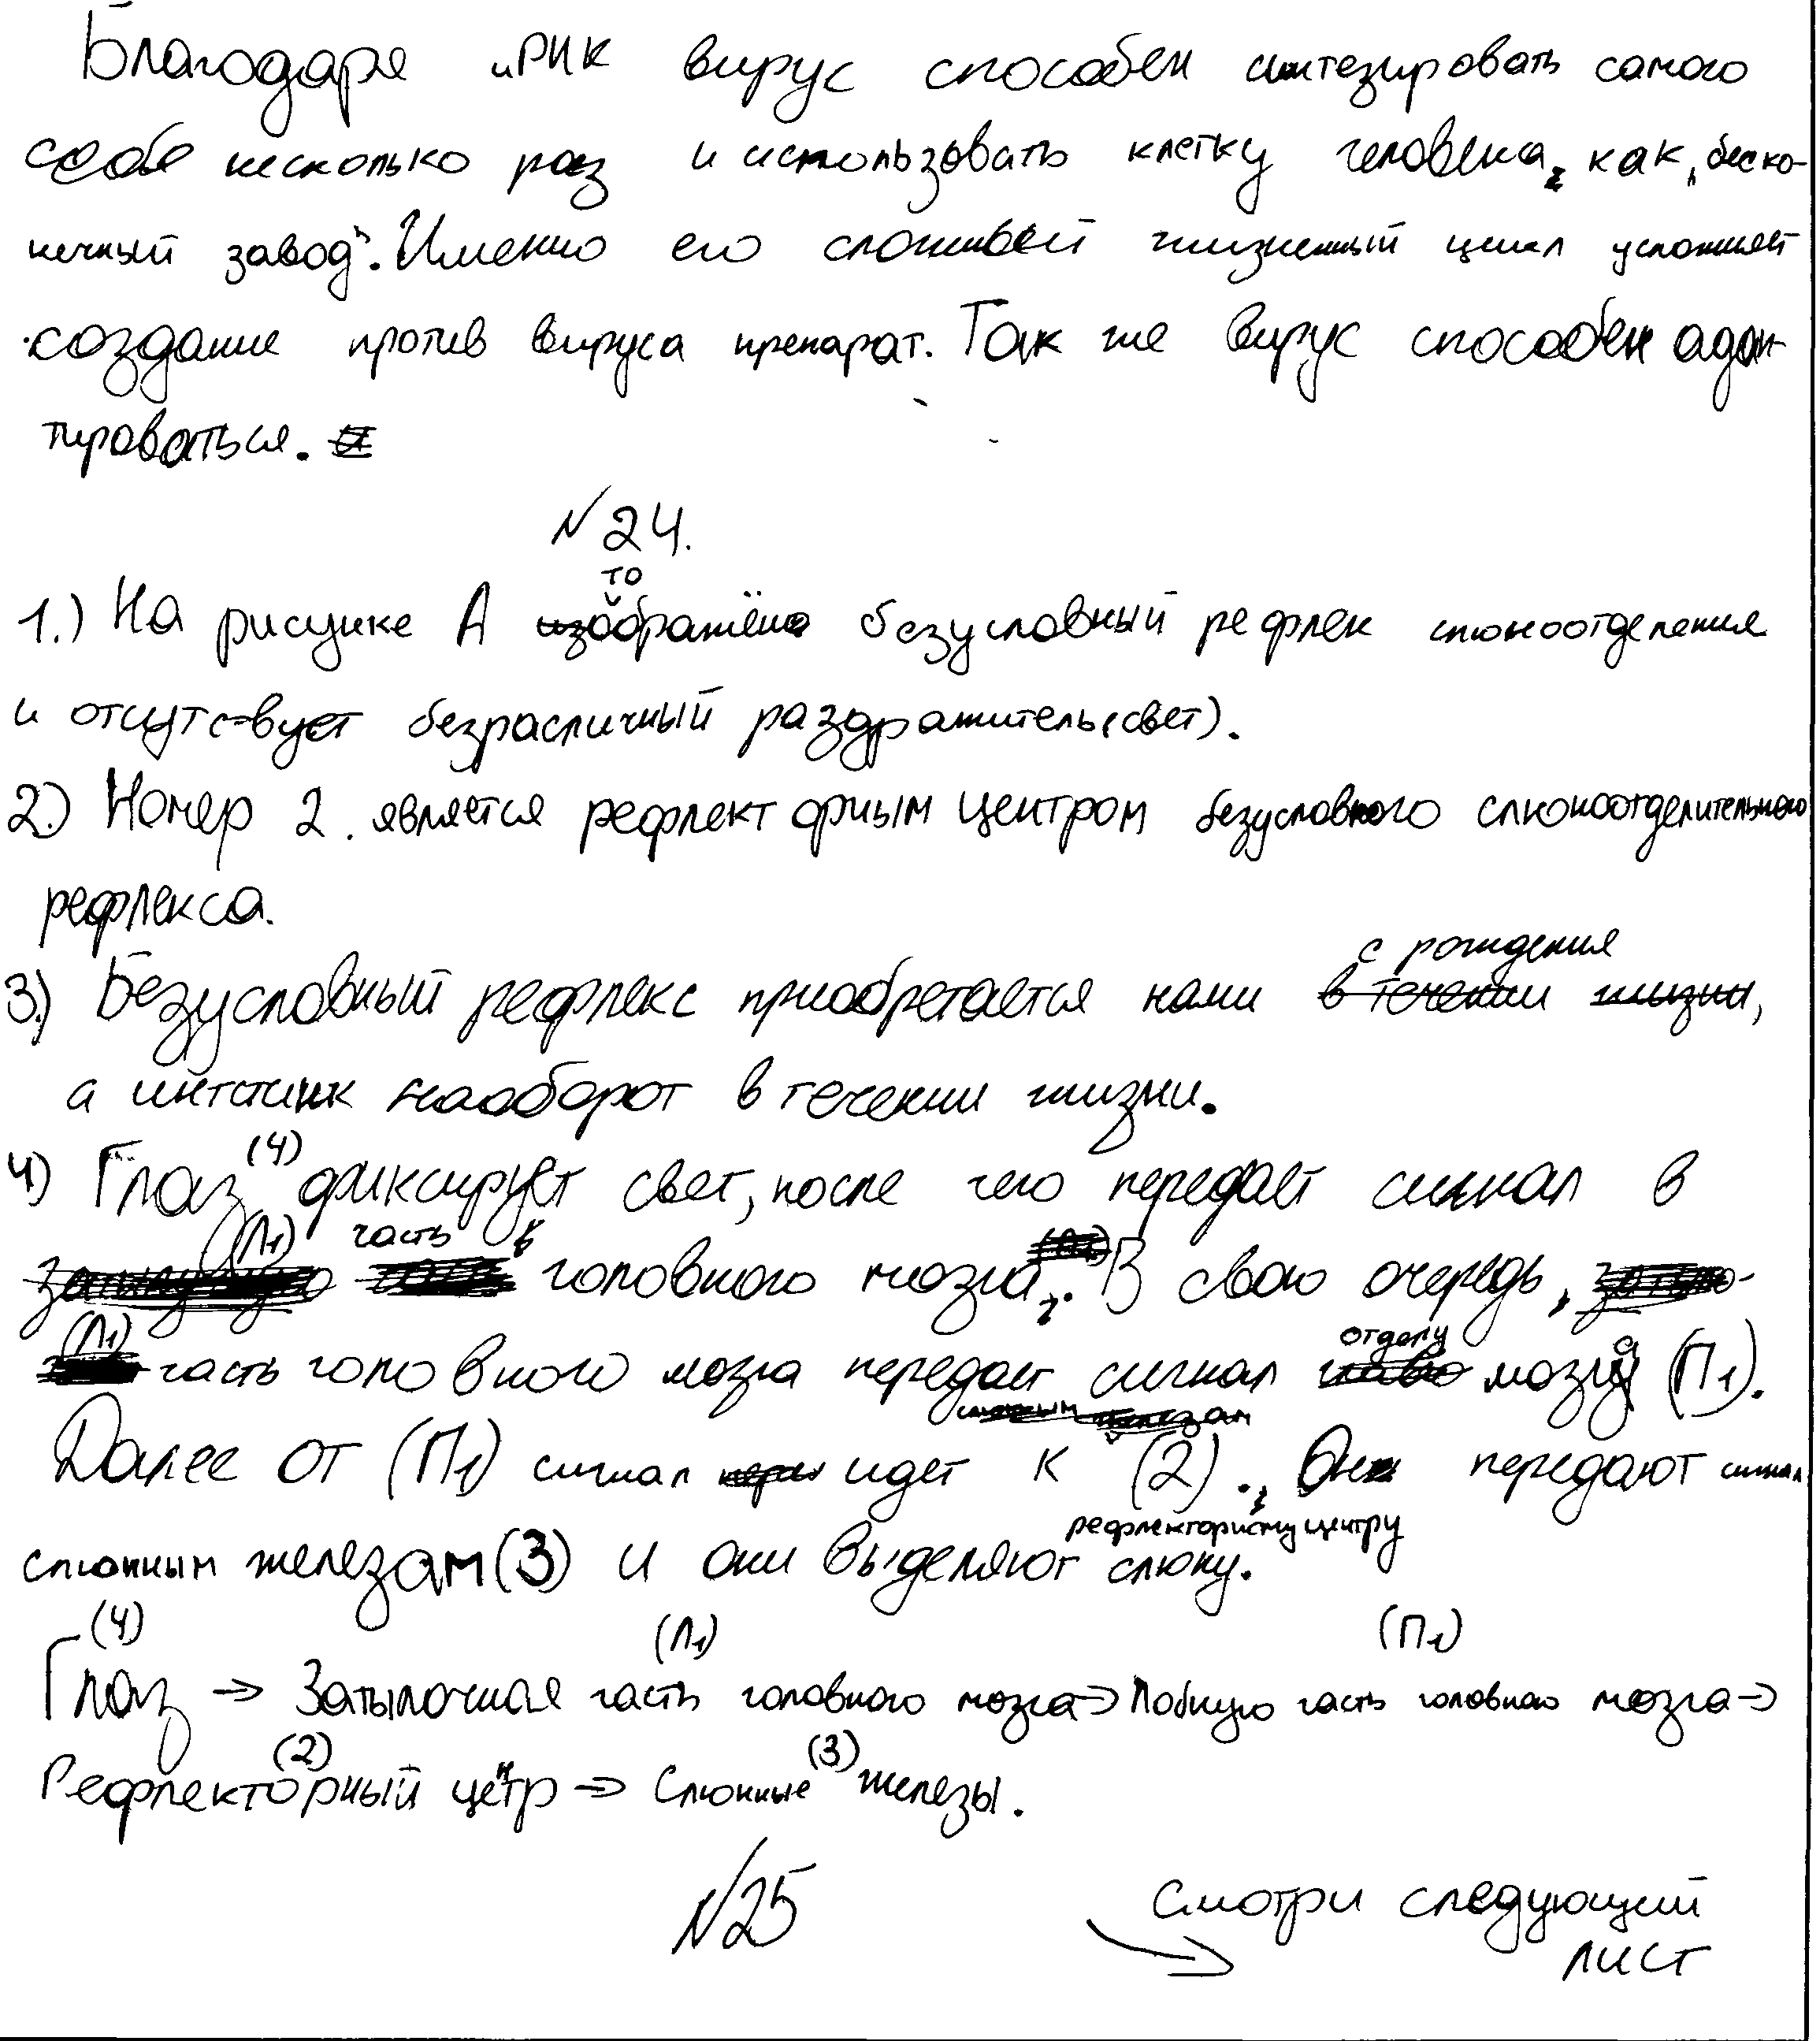 Благодаря иРНК вирус способен синтезировать самого
себя несколько раз и использовать клетку человека, как „беско-
нечный завод". Именно его сложный жизненный цикл усложняет
создание против вируса препарат. Так же вирус способен адап-
тироваться.
№ 24.
то
1.) На рисунке А изображёно безусловный рефлек слюноотделения
и отсутствует безрасличный раздражитель (свет).
2.) Номер 2. является рефлекторным центром безусловного слюноотделительного
рефлекса.
с рождения
3.) Безусловный рефлекс приобретается нами в течении жизни,
а интстинк наоборот в течении жизни.
4) Глаз (4) фиксирует свет, после чего передаёт сигнал в
(Л1) часть головного мозга. В свою очередь,
(Л1) часть головного мозга передаёт сигнал отделу мозга (П1).
слюнным железам
Далее от (П1) сигнал идёт к (2). Он передают сигнал
рефлекторному центру
слюнным железам (3) и они выделяют слюну.
(4) (Л1) (П1)
Глаз → Затылочная часть головного мозга → Лобную часть головного мозга →
(2) (3)
Рефлекторный центр → Слюнные железы.
№25
Смотри следующий
лист